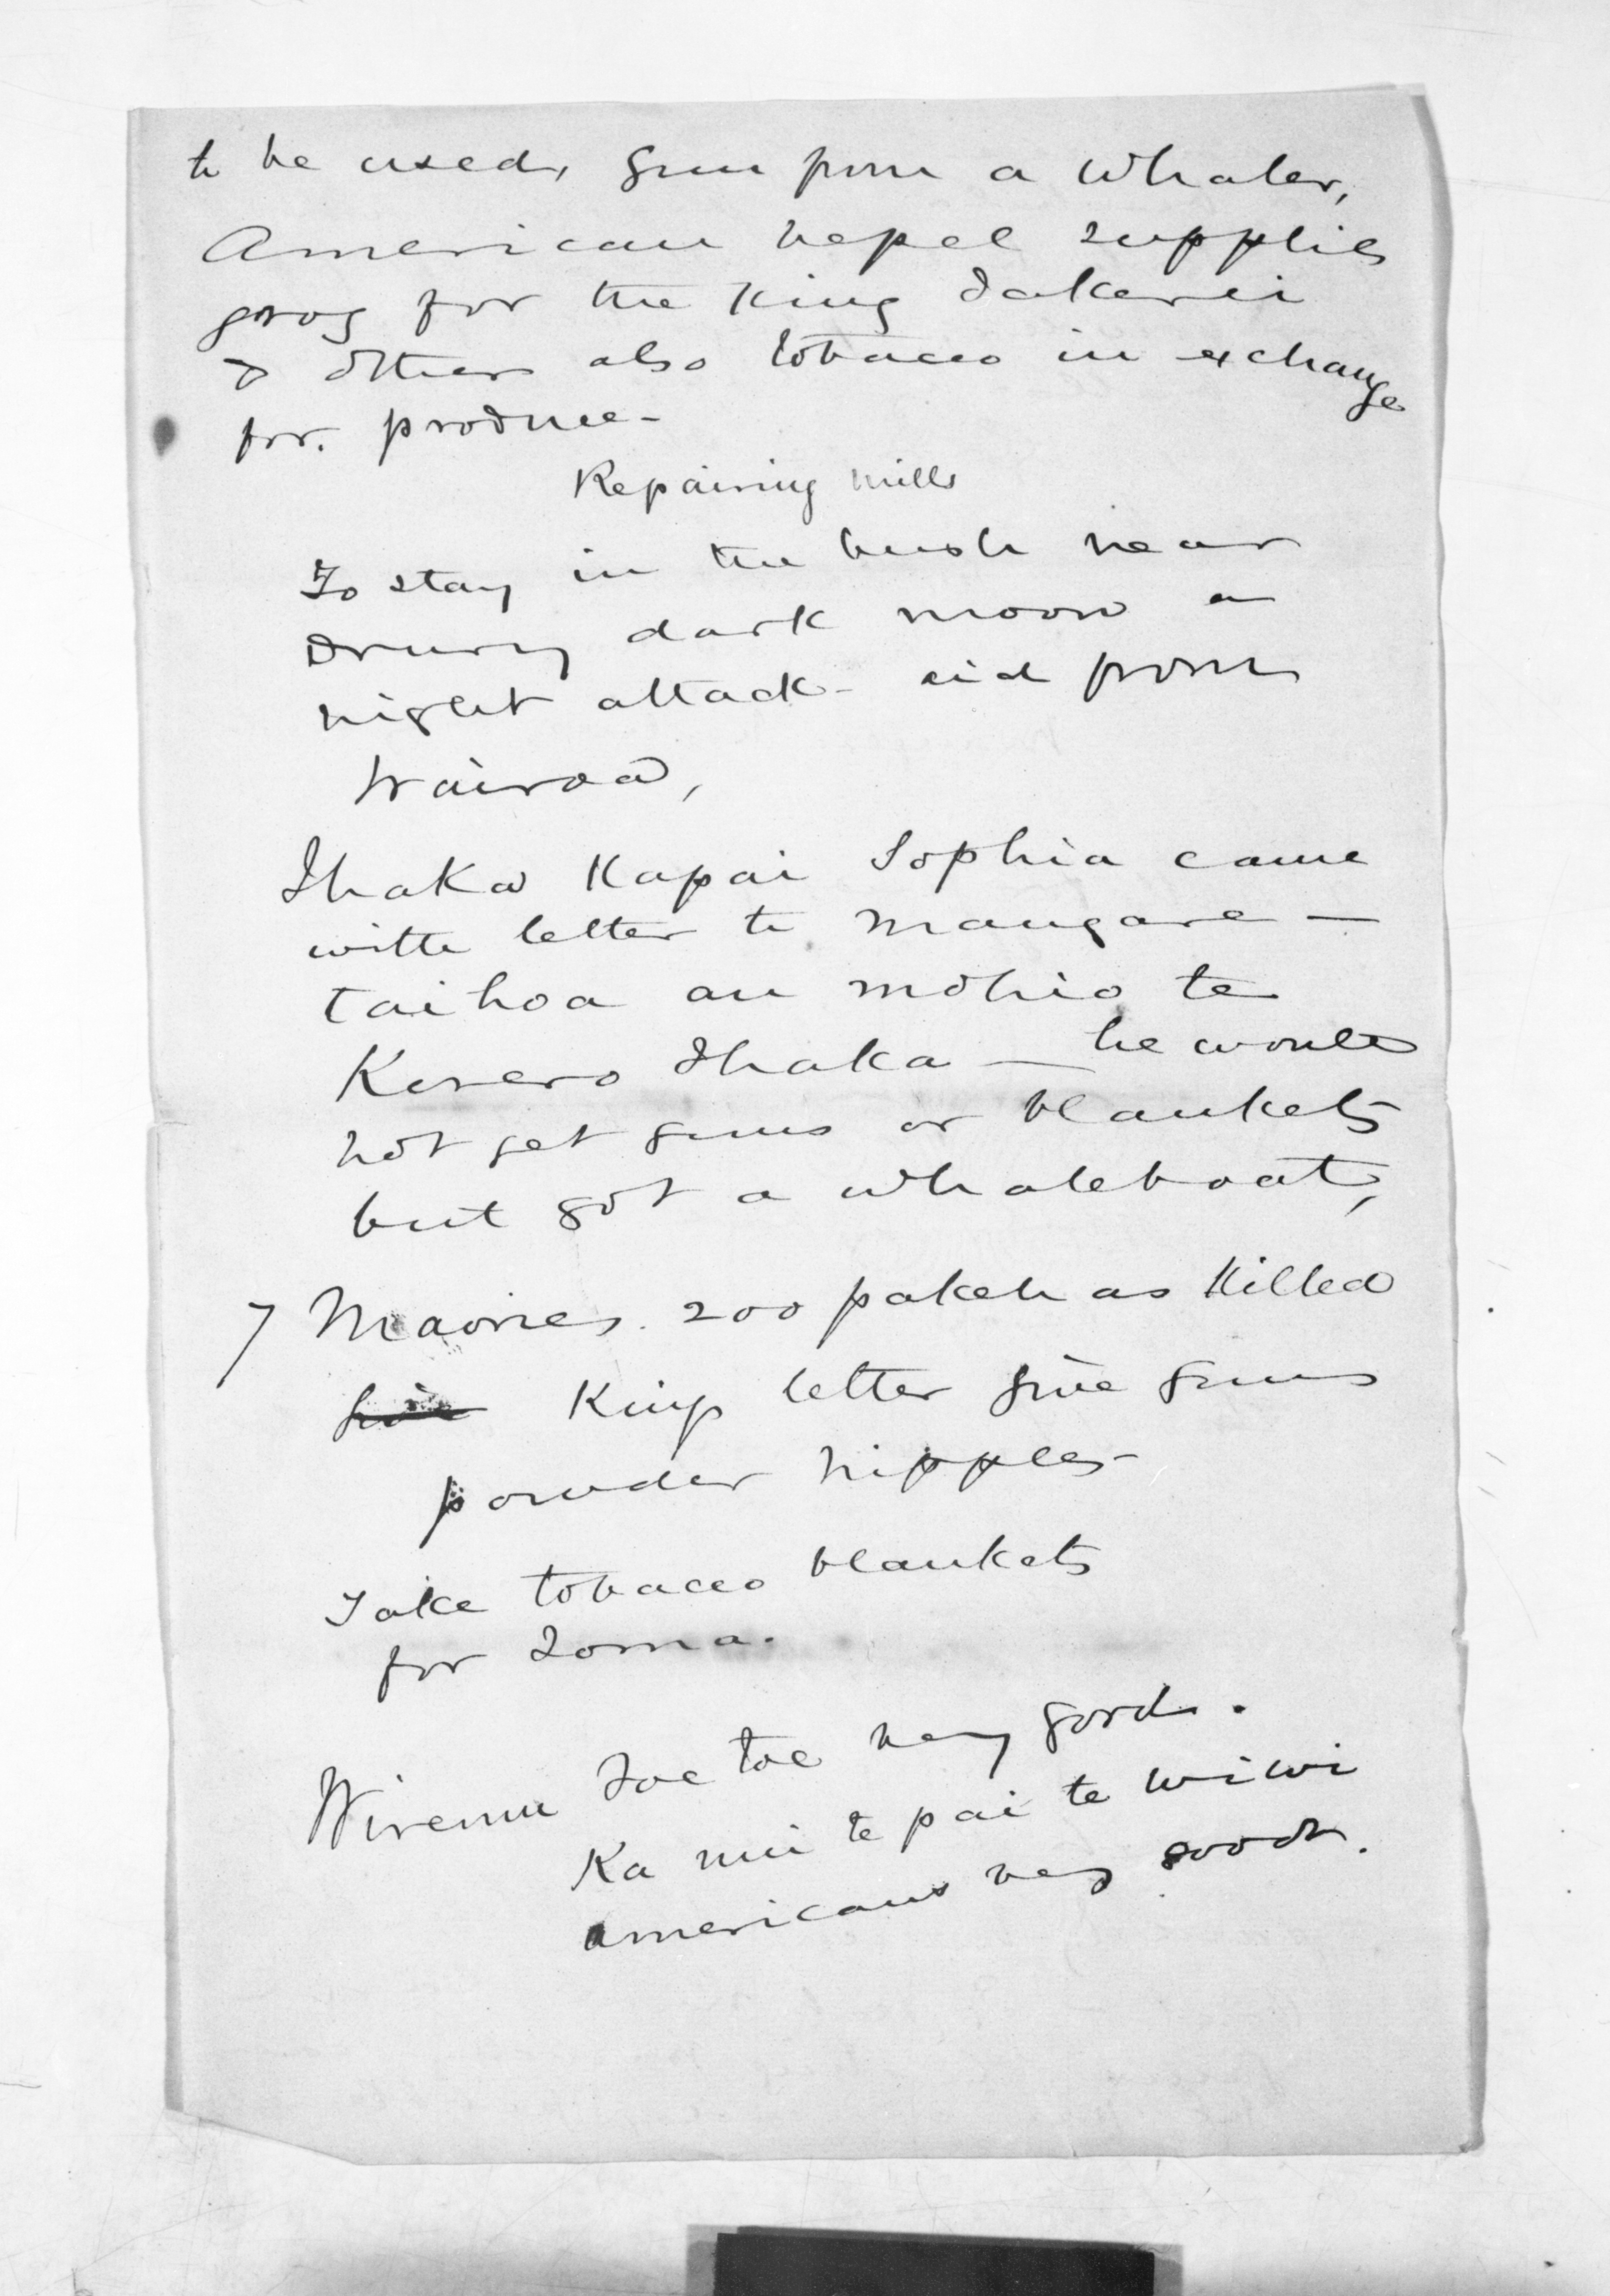 to be used, gun from a Whaler,
American vessel supplies
grog for the King Takerei
& others also tobacco in exchange
for. produce -
Repairing mills
To stay in the bush near
Drury dark moon a
night attack - aid from
Wairoa,
Ihaka Kapai Sophia came
with letter to Mangare -
taihoa au mohio te
Korero Ihaka - he would
not get guns or blankets
but got a whaleboat,
7 Maories. 200 pakehas Killed
King letter give guns
powder nipples -
Take tobacco blankets
for
Wiremu Toe toe very good.
Ka nui te pai te wiwi
Americans very good.